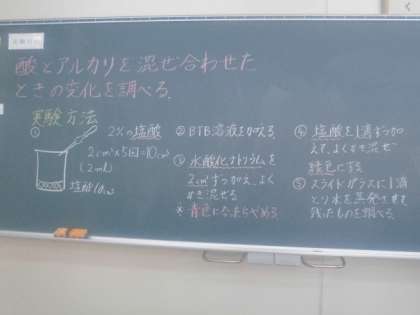 酸とアルカリを混ぜ合わせた
ときの変化を調べる。
実験方法
①
2%の塩酸
2cm³×5回=10cm³
(2mL)
塩酸10cm³
②BTB溶液を加える。
③水酸化ナトリウムを
2cm³ずつ加え、よく
かき混ぜる
※青色になったらやめる
④塩酸を1滴ずつ加
えて、よくかき混ぜ
緑色にする
⑤スライドガラスに1滴
とり水を蒸発させて
残ったものを調べる。